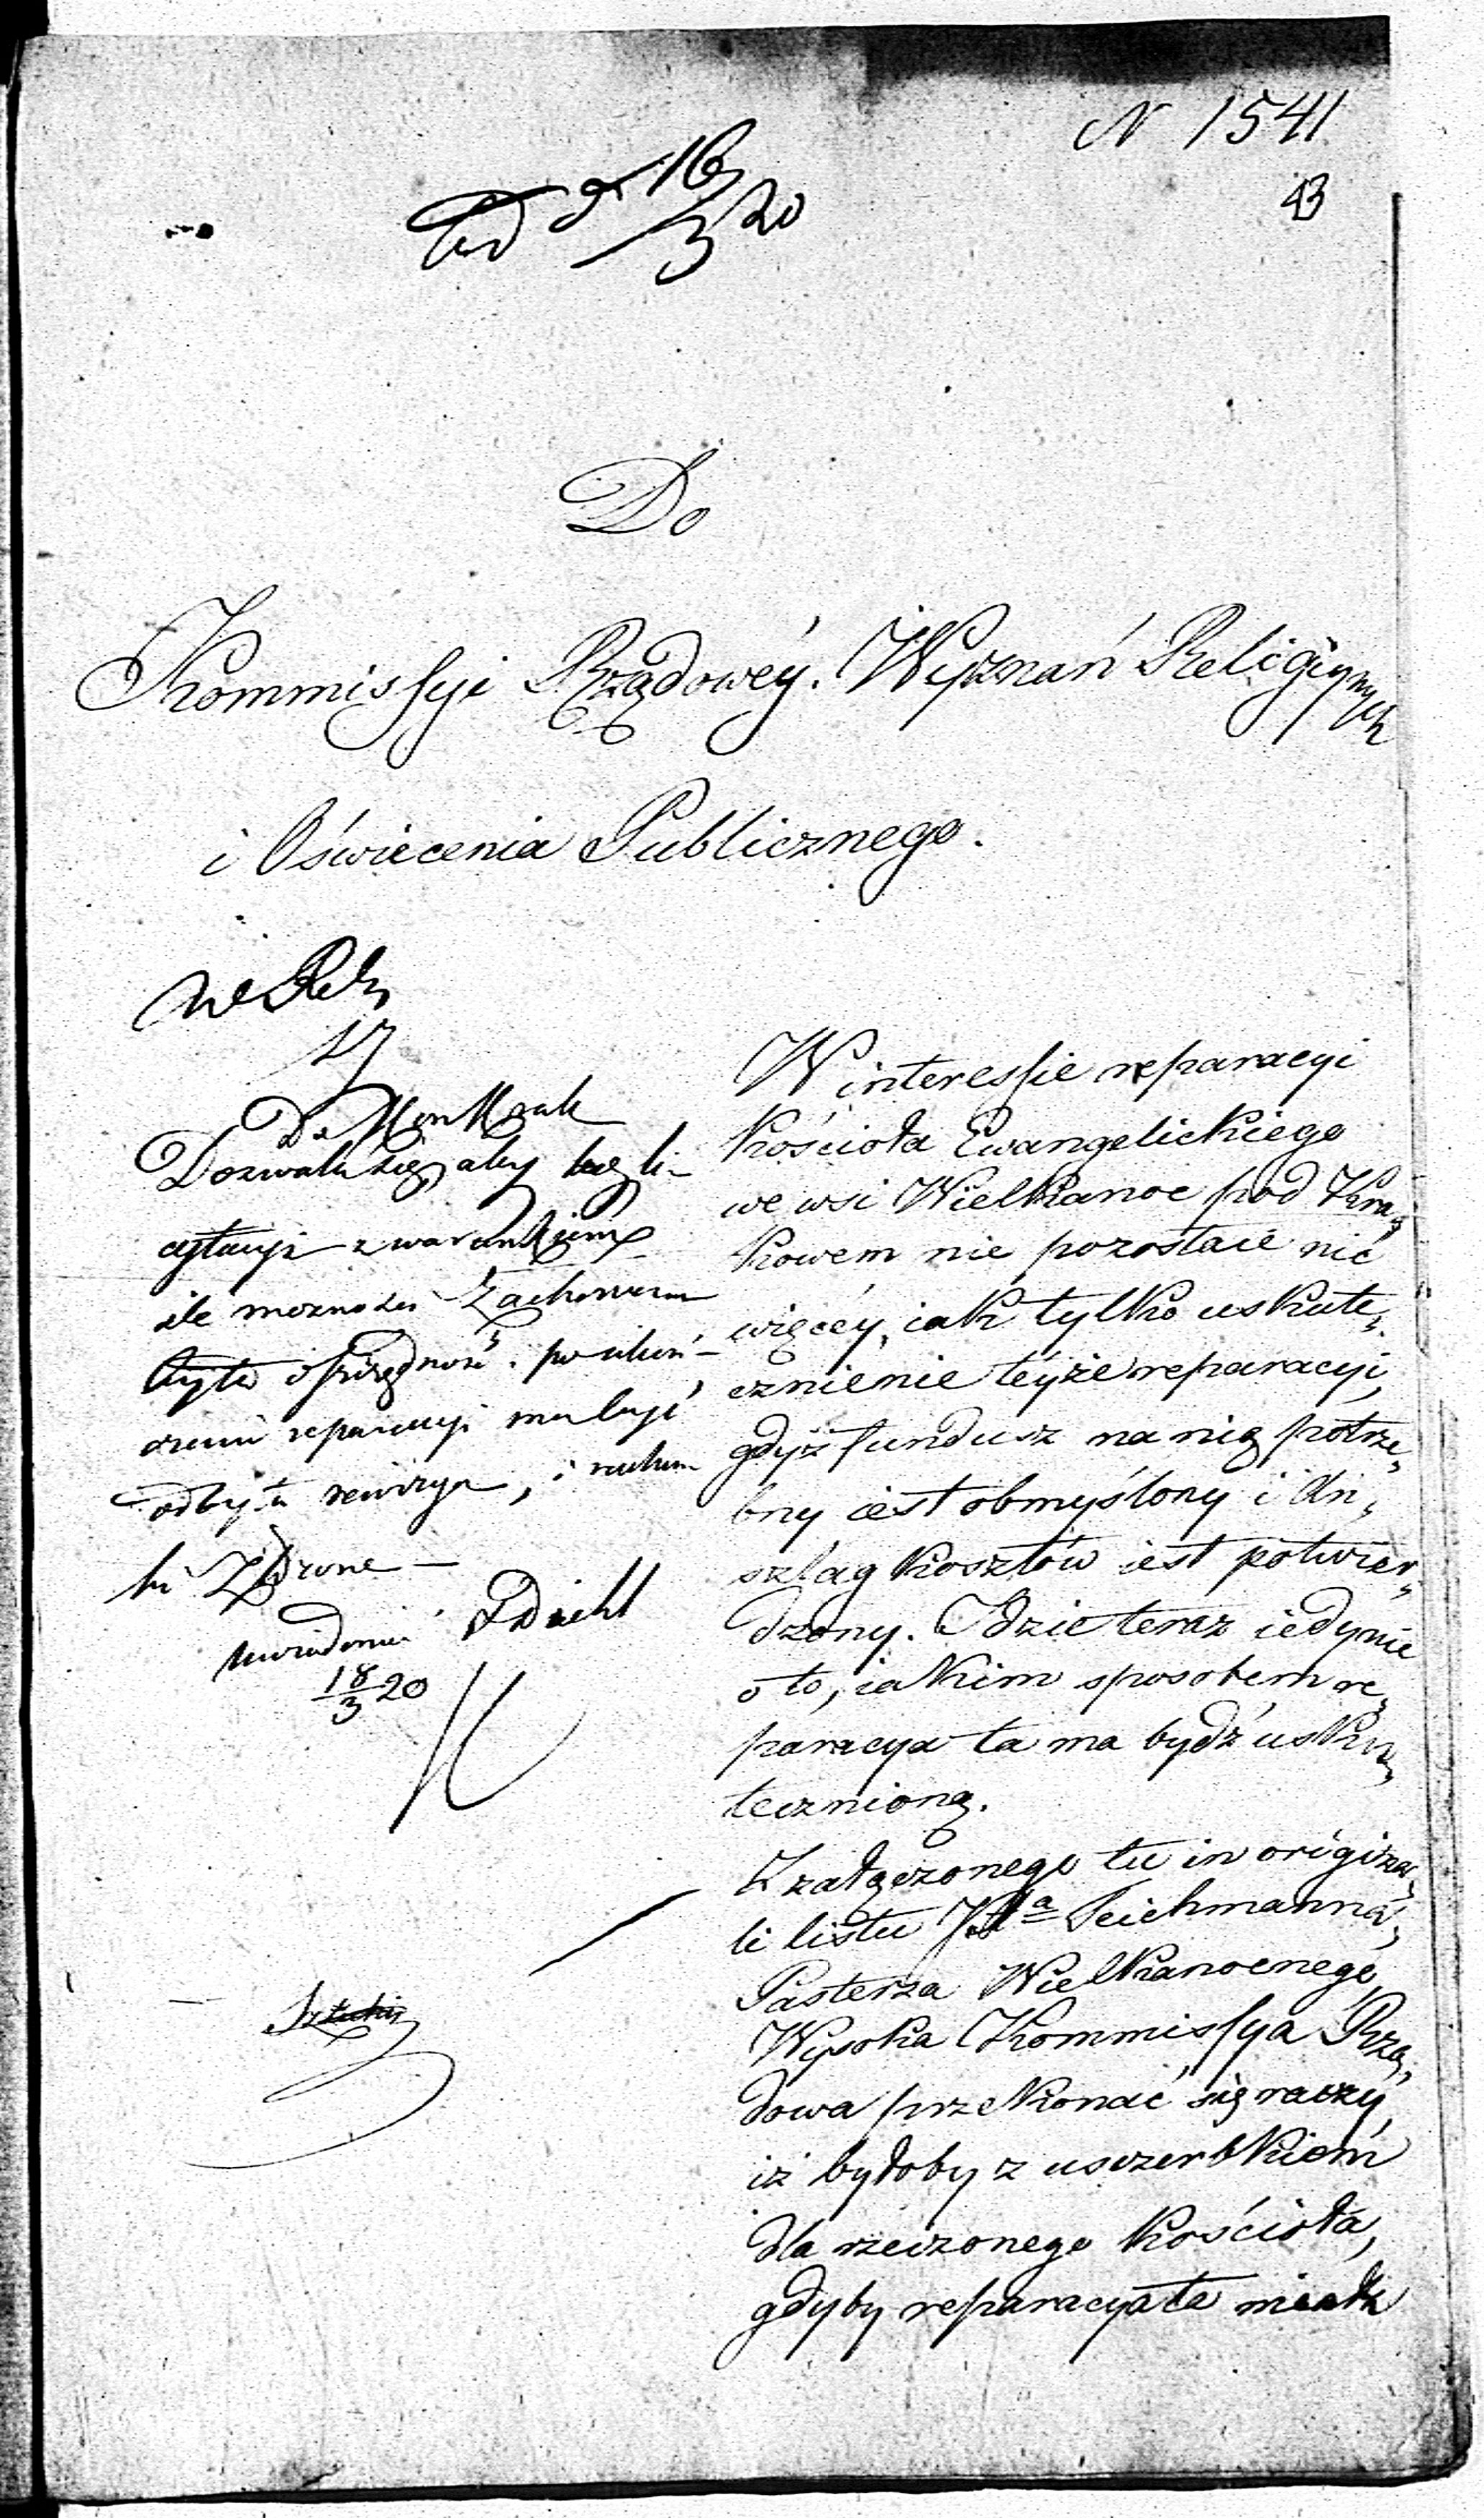 N 1541
d 16/3 20
43
Do
Kommissyi Rządowéy Wyznań Religijnych
i Oświecenia Publicznego.
17
Dozwala się, aby bez li-
cytacyi z warunkiem
ile możności zachowana
była oszczędność. po ukoń-
czeniu reparacyi ma bydź
odbyta rewizya, i rachun
ki złożone —
uwiadomić
18/3 20
W interessie reparacyi
Kościoła Ewangelickiego
we wsi Wielkanoc pod Kra„
kowem nie pozostaie nic
więcéy, iak tylko uskute„
cznienie téyże reparacyi,
gdyż fundusz na nię potrze„
bny iest obmyślony i An„
szlag kosztów iest potwier„
dzony. Idzie teraz iedynie
o to, iakim sposobem re„
paracya ta ma bydź usku„
tecznioną.
Z załączonego tu in origina„
li listu Teichmanna,
Pasterza Wielkanocnego,
Wysoka Kommissya Rzą„
dowa przekonać się raczy,
iż byłoby z uszczerbkiem
dla rzeczonego Kościoła,
gdyby reparacya ta